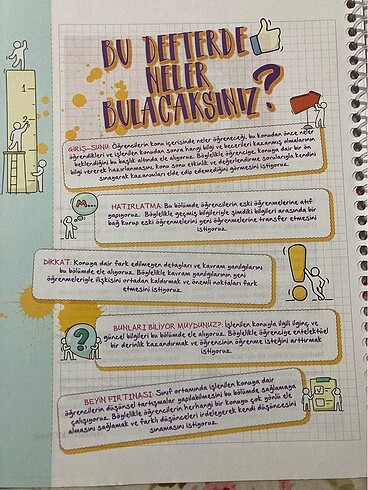 BU DEFTERDE
NELER
BULACAKSINIZ?
GİRİŞ-SUNU: Öğrencilerin konu içerisinde neler öğreneceği, bu konudan önce neler
öğrendikleri ve işlenen konudan sonra hangi bilgi ve becerileri kazanmış olmalarının
beklendiğini bu başlık altında ele alıyoruz. Böylelikle öğrenciye, konuya dair bir ön
bilgi vererek hazırlanmasını, konu sonu etkinlik ve değerlendirme sorularıyla kendini
sınayarak kazanımları elde edip edemediğini görmesini istiyoruz.
M...
HATIRLATMA: Bu bölümde öğrencilerin eski öğrenmelerine atıf
yapıyoruz. Böylelikle geçmiş bilgileriyle şimdiki bilgileri arasında bir
bağ kurup eski öğrenmelerini yeni öğrenmelerine transfer etmesini
istiyoruz.
DİKKAT: Konuya dair fark edilmeyen detayları ve kavram yanılgılarını
bu bölümde ele alıyoruz. Böylelikle kavram yanılgılarının yeni
öğrenmeleriyle ilişkisini ortadan kaldırmak ve önemli noktaları fark
etmesini istiyoruz.
!
?
BUNLARI BİLİYOR MUYDUNUZ?: İşlenen konuyla ilgili ilginç ve
güncel bilgileri bu bölümde ele alıyoruz. Böylelikle öğrenciye entelektüel
bir derinlik kazandırmak ve öğrencinin öğrenme isteğini arttırmak
istiyoruz.
BEYİN FIRTINASI: Sınıf ortamında işlenen konuya dair
öğrencilerin düşünsel tartışmalar yapabilmesini bu bölümde sağlamaya
çalışıyoruz. Böylelikle öğrencilerin herhangi bir konuya çok yönlü ele
almasını sağlamak ve farklı düşünceleri irdeleyerek kendi düşüncesini
sınamasını istiyoruz.
1
2